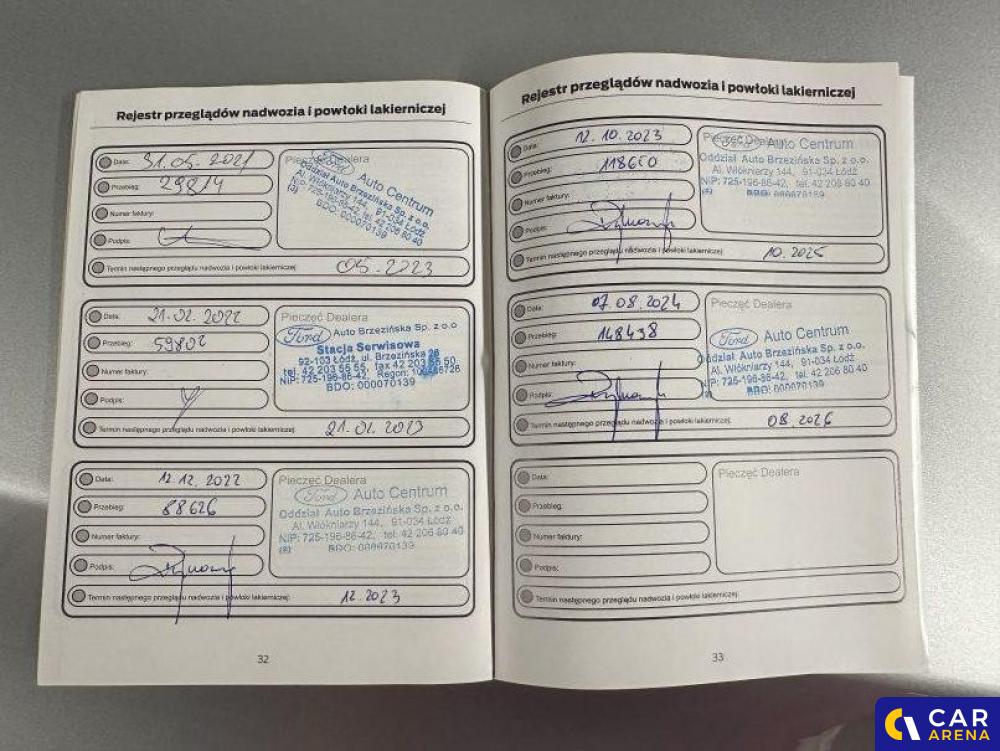 Rejestr przeglądów nadwozia i powłoki lakierniczej
Data: 31.05.2021
Przebieg: 29814
Numer faktury:
Podpis:
Pieczęć Dealera
Ford Auto Centrum
Oddział Auto Brzezińska Sp. z o.o.
Al. Włókniarzy 144, 91-034 Łódź
NIP: 725-196-86-42, tel. 42 206 80 40
(3) BDO: 000070139
Termin następnego przeglądu nadwozia i powłoki lakierniczej: 05.2023
Data: 21.02.2022
Przebieg: 59802
Numer faktury:
Podpis:
Pieczęć Dealera
Ford Auto Brzezińska Sp. z o.o
Stacja Serwisowa
92-103 Łódź, ul. Brzezińska
tel. 42 203 55 55, fax 42 203 50
NIP: 725-196-86-42, Regon:
BDO: 000070139
Termin następnego przeglądu nadwozia i powłoki lakierniczej: 21.02.2023
Data: 12.12.2022
Przebieg: 88626
Numer faktury:
Podpis:
Pieczęć Dealera
Ford Auto Centrum
Oddział Auto Brzezińska Sp. z o.o.
Al. Włókniarzy 144, 91-034 Łódź
NIP: 725-196-86-42, tel. 42 206 80 40
BDO: 000070139
Termin następnego przeglądu nadwozia i powłoki lakierniczej: 12.2023
32
Rejestr przeglądów nadwozia i powłoki lakierniczej
Data: 12.10.2023
Przebieg:
Numer faktury:
Podpis:
Pieczęć Dealera
Ford Auto Centrum
Oddział Auto Brzezińska Sp. z o.o.
Al. Włókniarzy 144, 91-034 Łódź
NIP: 725-196-86-42, tel. 42 206 80 40
BDO: 000070139
Termin następnego przeglądu nadwozia i powłoki lakierniczej: 10.2025
Data: 07.08.2024
Przebieg: 148438
Numer faktury:
Podpis:
Pieczęć Dealera
Ford Auto Centrum
Oddział Auto Brzezińska Sp. z o.o.
Al. Włókniarzy 144, 91-034 Łódź
NIP: 725-196-86-42, tel. 42 206 80 40
BDO: 000070139
Termin następnego przeglądu nadwozia i powłoki lakierniczej: 08.2026
Data:
Przebieg:
Numer faktury:
Podpis:
Pieczęć Dealera
Termin następnego przeglądu nadwozia i powłoki lakierniczej:
33
CAR
ARENA